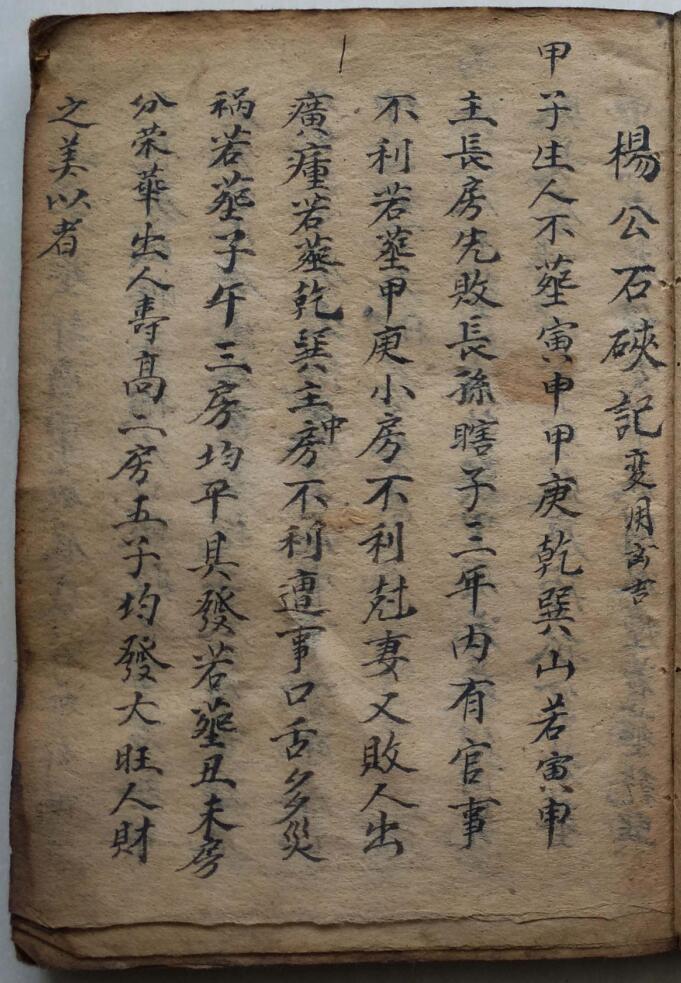 楊公石硤記 变用六吉
甲子生人不葬寅申甲庚乾巽山若寅申
主長房先敗長孫瞎子三年内有官事
不利若葬甲庚小房不利尅妻又敗人出
癀瘇若葬乾巽主中房不利遭事口舌多災
禍若葬子午三房均平具發若葬丑未房
分荣華出人壽髙二房五子均發大旺人財
之美以者